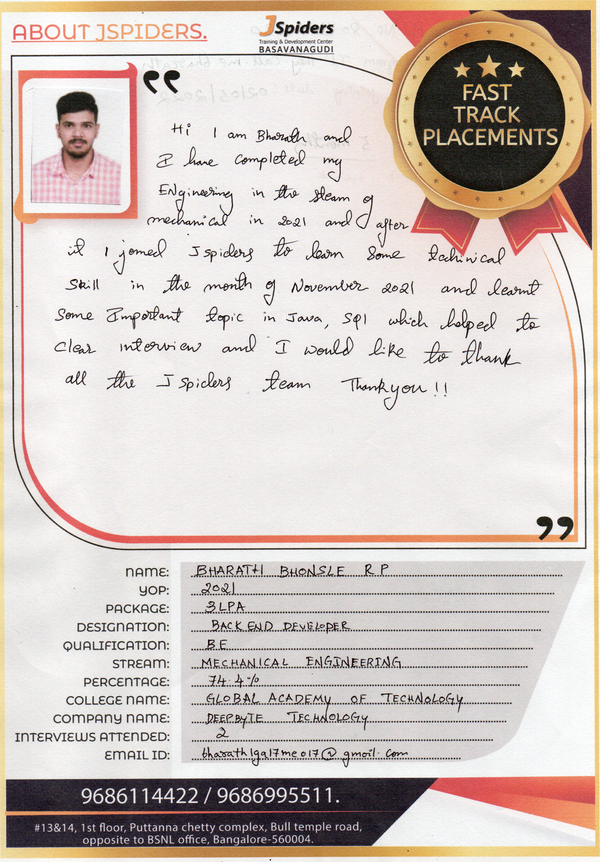 ABOUT JSPIDERS.
JSpiders
Training & Development Center
BASAVANAGUDI
FAST
TRACK
PLACEMENTS
Hi I am Bharath and
I have completed my
Engineering in the steam of
mechanical in 2021 and after
it I joined Jspiders to learn Some tachinical
Skill in the month of November 2021 and learnt
Some Important topic in Java, Sql which helped to
Clear interview and I would like to thank
all the Jspiders team Thankyou !!
NAME: BHARATH BHONSLE R P
YOP: 2021
PACKAGE: 3LPA
DESIGNATION: BACK END DEVELOPER
QUALIFICATION: B.E
STREAM: MECHANICAL ENGINEERING
PERCENTAGE: 74.4%
COLLEGE NAME: GLOBAL ACADEMY OF TECHNOLOGY
COMPANY NAME: DEEPBYTE TECHNOLOGY
INTERVIEWS ATTENDED: 2
EMAIL ID: bharath1ga17me017@gmail.com
9686114422 / 9686995511.
#13&14, 1st floor, Puttanna chetty complex, Bull temple road,
opposite to BSNL office, Bangalore-560004.